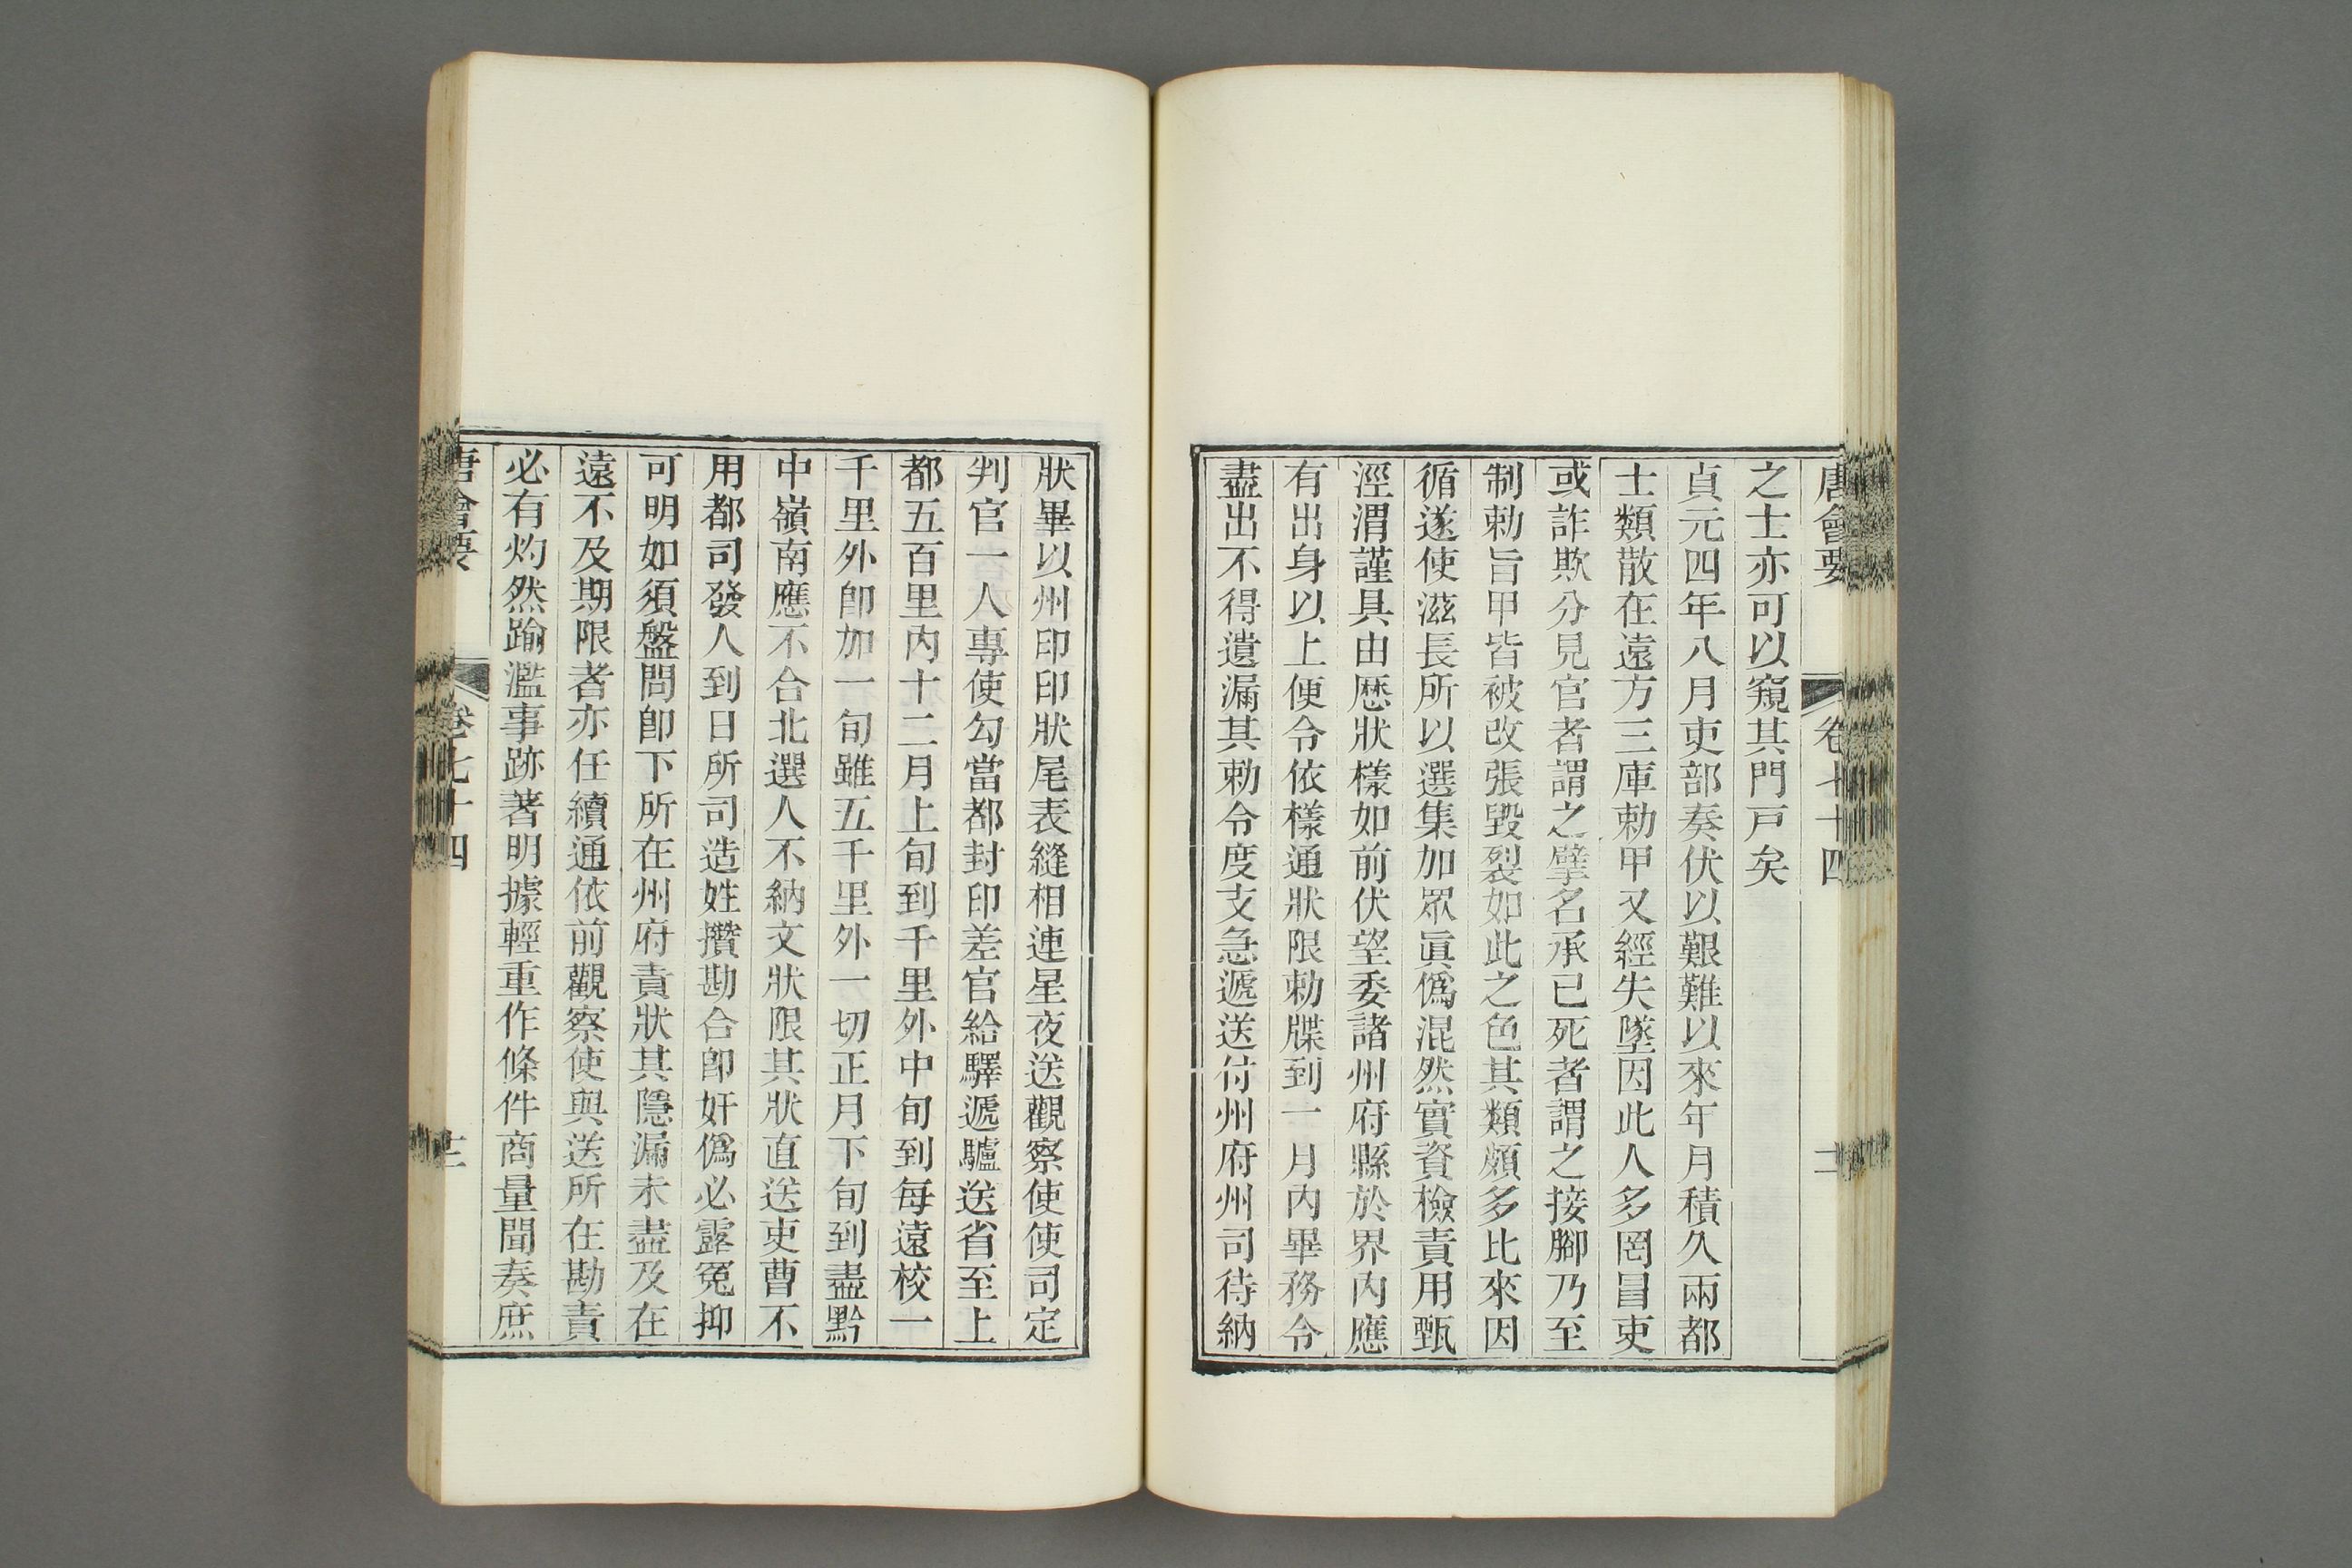 唐會要 卷七十四
之士亦可以窺其門戸矣
貞元四年八月吏部奏伏以艱難以來年月積久兩都
士類散在遠方三庫勅甲又經失墜因此人多罔冒吏
或詐欺分見官者謂之擘名承已死者謂之接腳乃至
制勅旨甲皆被改張毀裂如此之色其類頗多比來因
循遂使滋長所以選集加眾眞僞混然實資檢責用甄
涇渭謹具由歷狀樣如前伏望委諸州府縣於界内應
有出身以上便令依樣通狀限勅牒到一月内畢務令
盡出不得遺漏其勅令度支急遞送付州府州司待納
狀畢以州印印狀尾表縫相連星夜送觀察使使司定
判官一人專使勾當都封印差官給驛遞驢送省至上
都五百里内十二月上旬到千里外中旬到每遠校一
千里外卽加一旬雖五千里外一切正月下旬到盡黔
中嶺南應不合北選人不納文狀限其狀直送吏曹不
用都司發人到日所司造姓攢勘合卽奸僞必露冤抑
可明如須盤問卽下所在州府責狀其隱漏未盡及在
遠不及期限者亦任續通依前觀察使與送所在勘責
必有灼然踰濫事跡著明據輕重作條件商量聞奏庶
唐會要 卷七十四